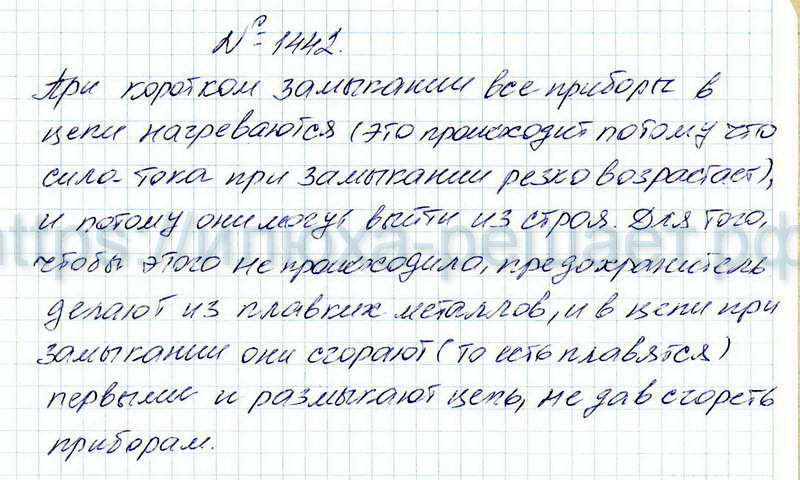 № 1442.
При коротком замыкании все приборы в
цепи нагреваются (это происходит потому что
сила тока при замыкании резко возрастает),
и потому они могут выйти из строя. Для того,
https://илюха-решает.рф
чтобы этого не происходило, предохранитель
делают из плавких металлов, и в цепи при
замыкании они сгорают (то есть плавятся)
первыми и размыкают цепь, не дав сгореть
приборам.